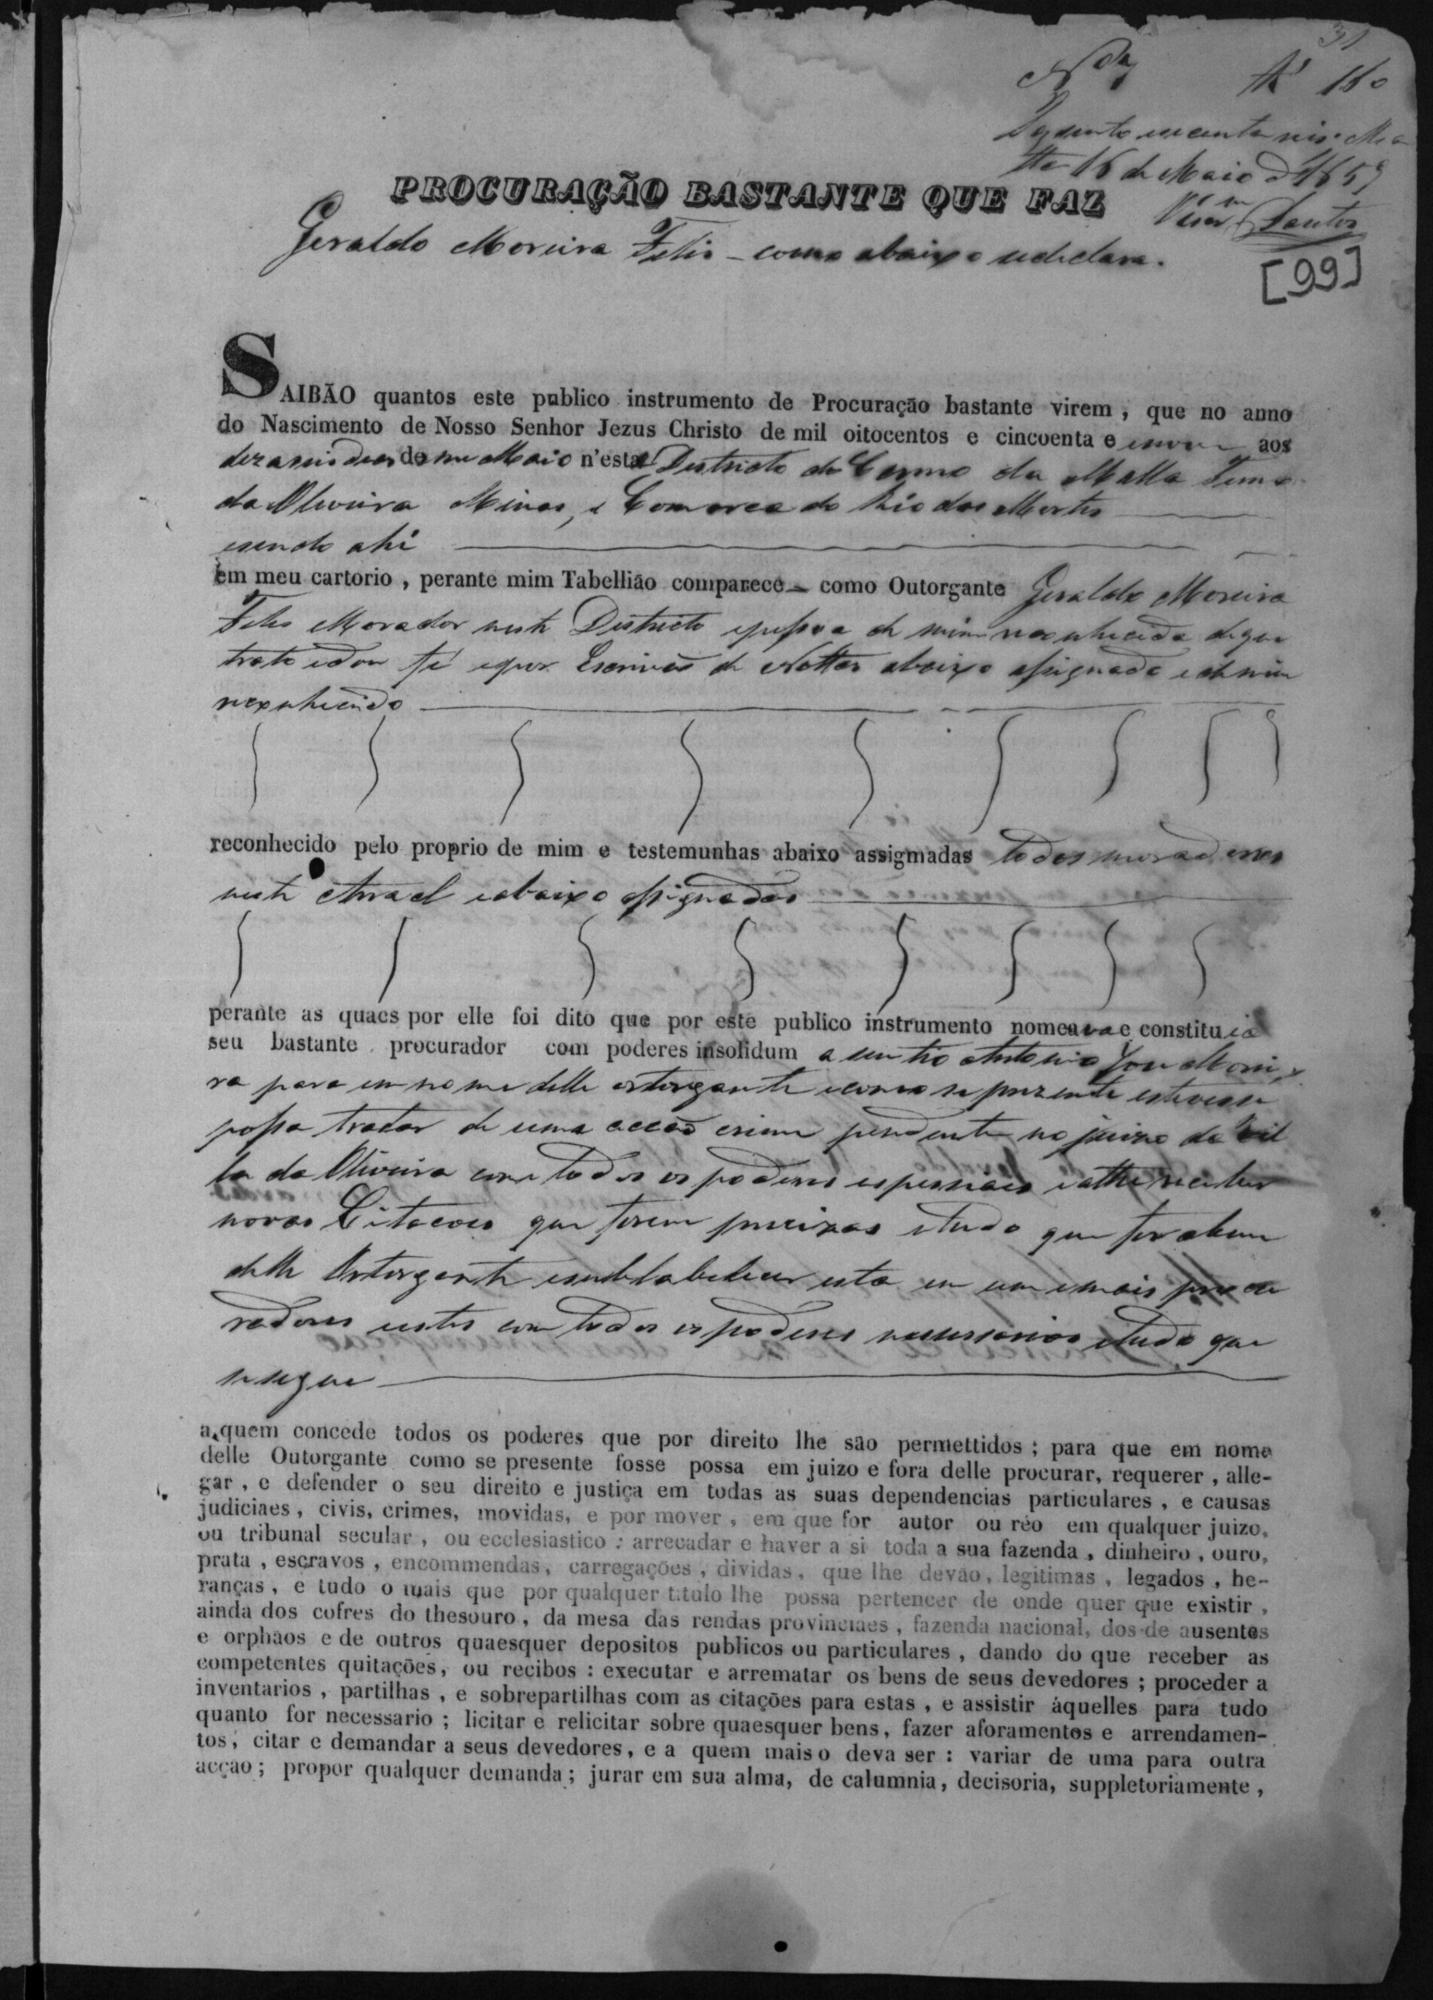 31
Nº 160
160
tta 16 de Maio de 1859
Santos
PROCURAÇÃO BASTANTE QUE FAZ
Geraldo Moreira Felis – como abaixo sedeclara.
[99]
SAIBÃO quantos este publico instrumento de Procuração bastante virem , que no anno
do Nascimento de Nosso Senhor Jezus Christo de mil oitocentos e cincoenta e enove aos
dezaseis dias do me Maio n'esta Districto do Carmo da Matta Termo
da Oliveira Minas, e Comarca do Rio das Mortes
esendo ahi
em meu cartorio , perante mim Tabellião comparece – como Outorgante Geraldo Moreira
Felis Morador neste Districto epessoa de mim reconhecida deque
trato edou fé epor Escrivão de Nottas abaixo assignado edemim
reconhecido
reconhecido pelo proprio de mim e testemunhas abaixo assignadas todos moradores
neste Arrael eabaixo assignados
perante as quaes por elle foi dito que por este publico instrumento nomeava e constituia
seu bastante procurador com poderes insolidum a seu tio Antonio Jose Morei
ra para em nome delle ortorgante ecomo se prezente estivesse
possa tratar de uma accão crime pendente no juizo da Vil
la da Oliveira com todos os poderes espessiaes eathe receber
novas Citacoes que forem precizas etudo que for abem
delle Ortorgante esubstabelecer esta em um emais procu
radores estes com todos os poderes nesessarios etudo que
sesegue
a quem concede todos os poderes que por direito lhe são permettidos ; para que em nome
delle Outorgante como se presente fosse possa em juizo e fora delle procurar, requerer , alle-
gar , e defender o seu direito e justiça em todas as suas dependencias particulares , e causas
judiciaes , civis, crimes, movidas, e por mover , em que for autor ou réo em qualquer juizo,
ou tribunal secular , ou ecclesiastico : arrecadar e haver a si toda a sua fazenda , dinheiro , ouro,
prata , escravos , encommendas, carregações , dividas, que lhe devão, legitimas , legados , he-
ranças , e tudo o mais que por qualquer titulo lhe possa pertencer de onde quer que existir ,
ainda dos cofres do thesouro , da mesa das rendas provinciaes , fazenda nacional, dos de ausentes
e orphãos e de outros quaesquer depositos publicos ou particulares , dando do que receber as
competentes quitações, ou recibos : executar e arrematar os bens de seus devedores ; proceder a
inventarios , partilhas , e sobrepartilhas com as citações para estas , e assistir áquelles para tudo
quanto for necessario ; licitar e relicitar sobre quaesquer bens, fazer aforamentos e arrendamen-
tos, citar e demandar a seus devedores, e a quem mais o deva ser : variar de uma para outra
acção ; propor qualquer demanda ; jurar em sua alma, de calumnia, decisoria, suppletoriamente ,